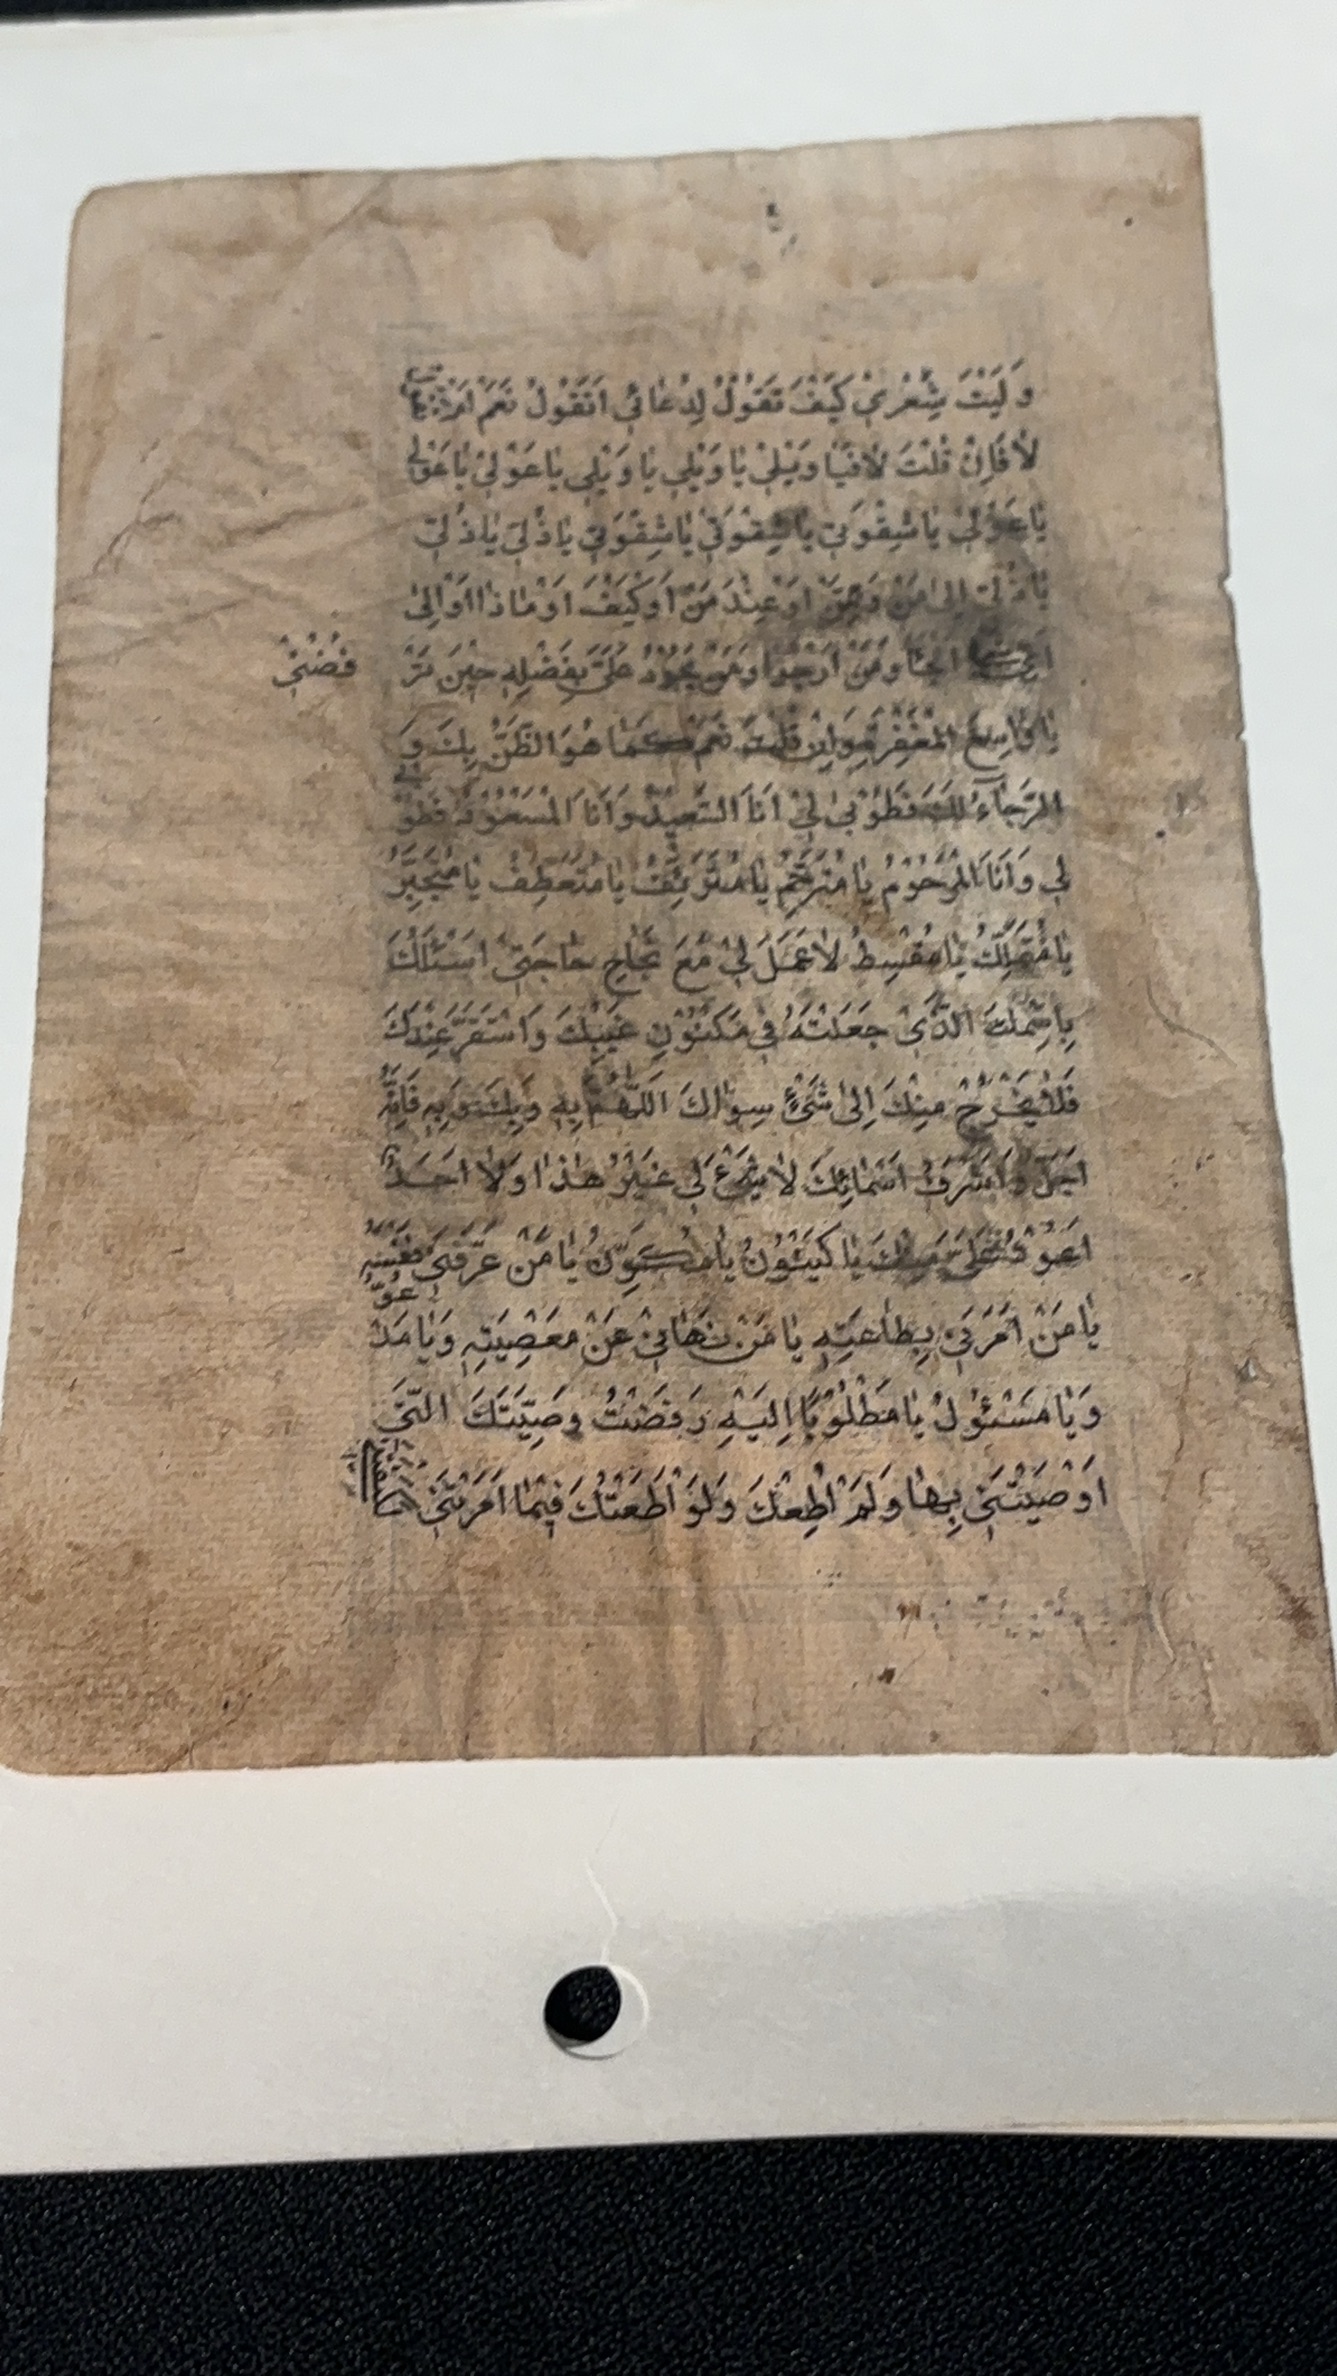 وَلَيْتَ شِعْرِي كَيْفَ تَقُولُ لِدُعَائِي اَتَقُولُ نَعَمْ اَمْ تَقُولُ
لَا فَاِنْ قُلْتَ لَا فَيَا وَيْلِي يَا وَيْلِي يَا وَيْلِي يَا عَوْلِي يَا عَوْلِي
يَا عَوْلِي يَا شِقْوَتِي يَا شِقْوَتِي يَا شِقْوَتِي يَا ذُلِّي يَا ذُلِّي
يَا ذُلِّي اِلىٰ مَنْ وَمِمَّنْ اَوْ عِنْدَ مَنْ اَوْ كَيْفَ اَوْ مَا ذَا اَوْ اِلىٰ
اَيِّ شَيْءٍ اَلْجَأُ وَمَنْ اَرْجُو وَمَنْ يَجُودُ عَلَيَّ بِفَضْلِهِ حِينَ تَرْ
فُضُنِي
يَا وَاسِعَ الْمَغْفِرَةِ وَاِنْ قُلْتَ نَعَمْ كَمَا هُوَ الظَّنُّ بِكَ وَ
الرَّجَاءُ لَكَ فَطُوْبىٰ لِي اَنَا السَّعِيدُ وَاَنَا الْمَسْعُودُ فَطُوْبىٰ
لِي وَاَنَا الْمَرْحُومُ يَا مُتَرَحِّمُ يَا مُتَرَئِّفُ يَا مُتَعَطِّفُ يَا مُتَجَبِّرُ
يَا مُتَمَلِّكُ يَا مُقْسِطُ لَا عَمَلَ لِي مَعَ نَجَاحِ حَاجَتِي اَسْئَلُكَ
بِاسْمِكَ الَّذِي جَعَلْتَهُ فِي مَكْنُونِ غَيْبِكَ وَاسْتَقَرَّ عِنْدَكَ
فَلَا يَخْرُجُ مِنْكَ اِلىٰ شَيْءٍ سِوَاكَ اَللّٰهُمَّ بِهِ وَبِكَ وَبِهِ فَاِنَّهُ
اَجَلُّ وَاَشْرَفُ اَسْمَائِكَ لَا شَيْءَ لِي غَيْرُ هٰذَا وَلَا اَحَدَ
اَعْوَدُ عَلَيَّ مِنْكَ يَا كَيْنُونُ يَا مُكَوِّنُ يَا مَنْ عَرَّفَنِي نَفْسَهُ
يَا مَنْ اَمَرَنِي بِطَاعَتِهِ يَا مَنْ نَهَانِي عَنْ مَعْصِيَتِهِ وَيَا مَدْعُوُّ
وَيَا مَسْئُولُ يَا مَطْلُوبًا اِلَيْهِ رَفَضْتُ وَصِيَّتَكَ الَّتِي
اَوْصَيْتَنِي بِهَا وَلَمْ اُطِعْكَ وَلَوْ اَطَعْتُكَ فِيمَا اَمَرْتَنِي